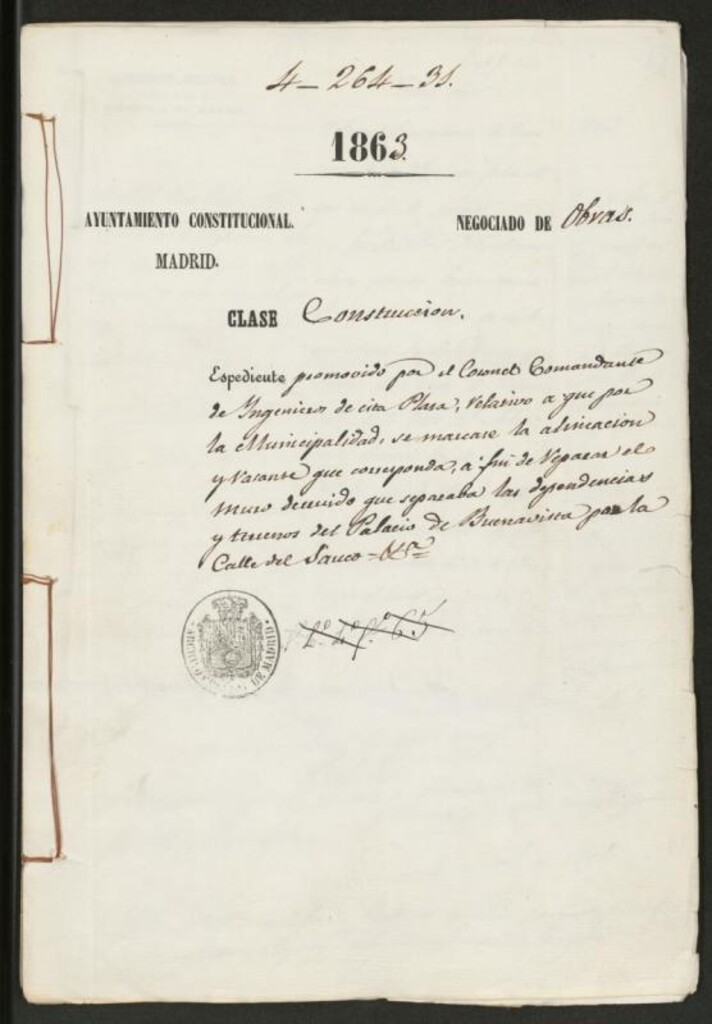 4-264-31.
1863.
AYUNTAMIENTO CONSTITUCIONAL.
NEGOCIADO DE Obras.
MADRID.
CLASE Construccion.
Espediente promovido por el Coronel Comandante
de Ingenieros de esta Plaza, relativo a que por
la Municipalidad, se marcase la alineacion
y rasante que corresponda, a fin de reparar el
muro derruido que separaba las dependencias
y terrenos del Palacio de Buenavista por la
Calle del Sauco
DE MADRID